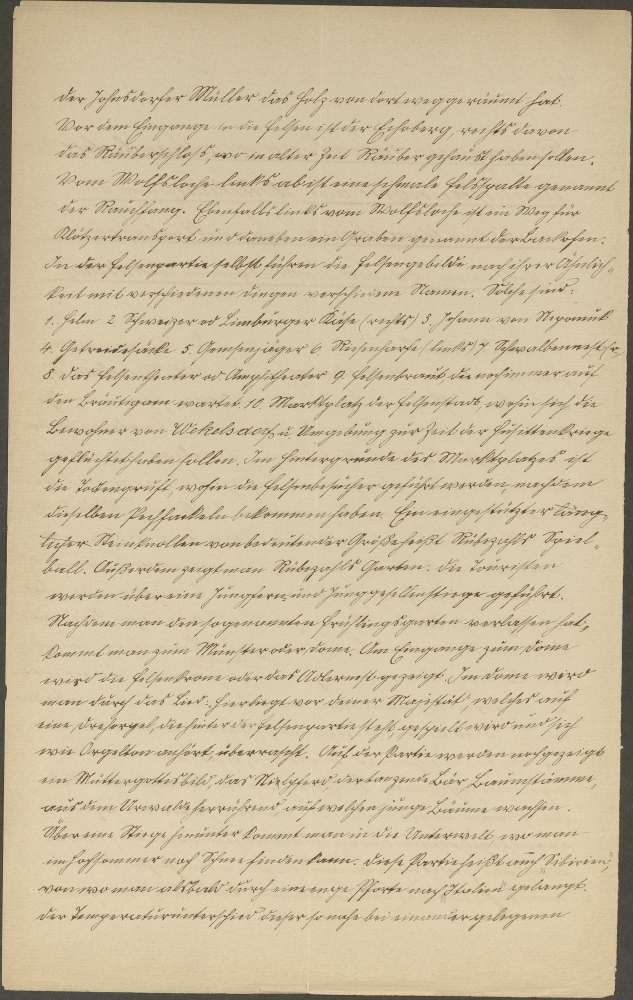 der Johnsdorfer Müller das Holz von dort weggeräumt hat.
Vor dem Eingange in die Felsen ist der Eschoberg, rechts davon
das Räuberschloß, wo in alter Zeit Räuber gehaust haben sollen.
Vom Wolfsloche links ab ist eine schmale Felsspalte genannt
der Rauchfang. Ebenfalls links vom Wolfsloche ist ein Weg für
Klötzertransport und daneben ein Graben genannt der Backofen.
In der Felsenpartie selbst führen die Felsengebilde nach ihrer Ähnlich-
keit mit verschiedenen Dingen verschiedene Namen. Solche sind:
1. Helm 2 Schweizer od Limburger Käse (rechts) 3. Johann von Nepomuk
4. Getreidesäcke 5. Gemsenjäger 6. Riesenharfe (links) 7 Schwalbennest
8. das Felsentheater od Amphitheater 9. Felsenbraut die noch immer auf
den Bräutigam wartet 10. Marktplatz der Felsenstadt, wohin sich die
Bewohner von Wekelsdorf u Umgebung zur Zeit der Hussitenkriege
geflüchtet haben sollen. Im Hintergrunde des Marktplatzes ist
die Todtengruft, wohin die Felsenbesucher geführt werden, nachdem
dieselben Pechfackeln bekommen haben. Ein eingestützter läng-
licher Steinknollen von bedeutender Größe heißt Rübezahls Spiel-
ball. Außerdem zeigt man Rübezahls Garten. Die Touristen
werden über eine Jungfern und Junggesellenstiege geführt.
Nachdem man den sogenannten Frühlingsgarten verlassen hat,
kommt man zum Münster oder Dome. Am Eingange zum Dome
wird die Felsenkrone oder das Adlernest gezeigt. Im Dome wird
man durch das Lied: "Hier liegt vor deiner Majestät" welches auf
eine Drehorgel, die hinter der Felsenpartie steht, gespielt wird und sich
wie Orgelton anhört, überrascht. Auf der Partie werden noch gezeigt
ein Muttergottesbild, das Nielpferd der tanzende Bär, Baumstämme,
aus dem Urwalde herrührend auf welchen junge Bäume wachsen.
Über eine Stiege hinunter kommt man in die Unterwelt, wo man
im Hochsommer noch Schnee finden kann. Diese Partie heißt auch "Sibirien",
von wo man alsbald durch eine enge Pforte nach "Italien" gelangt.
Der Temperaturunterschied dieser so nahe bei einander gelegenen